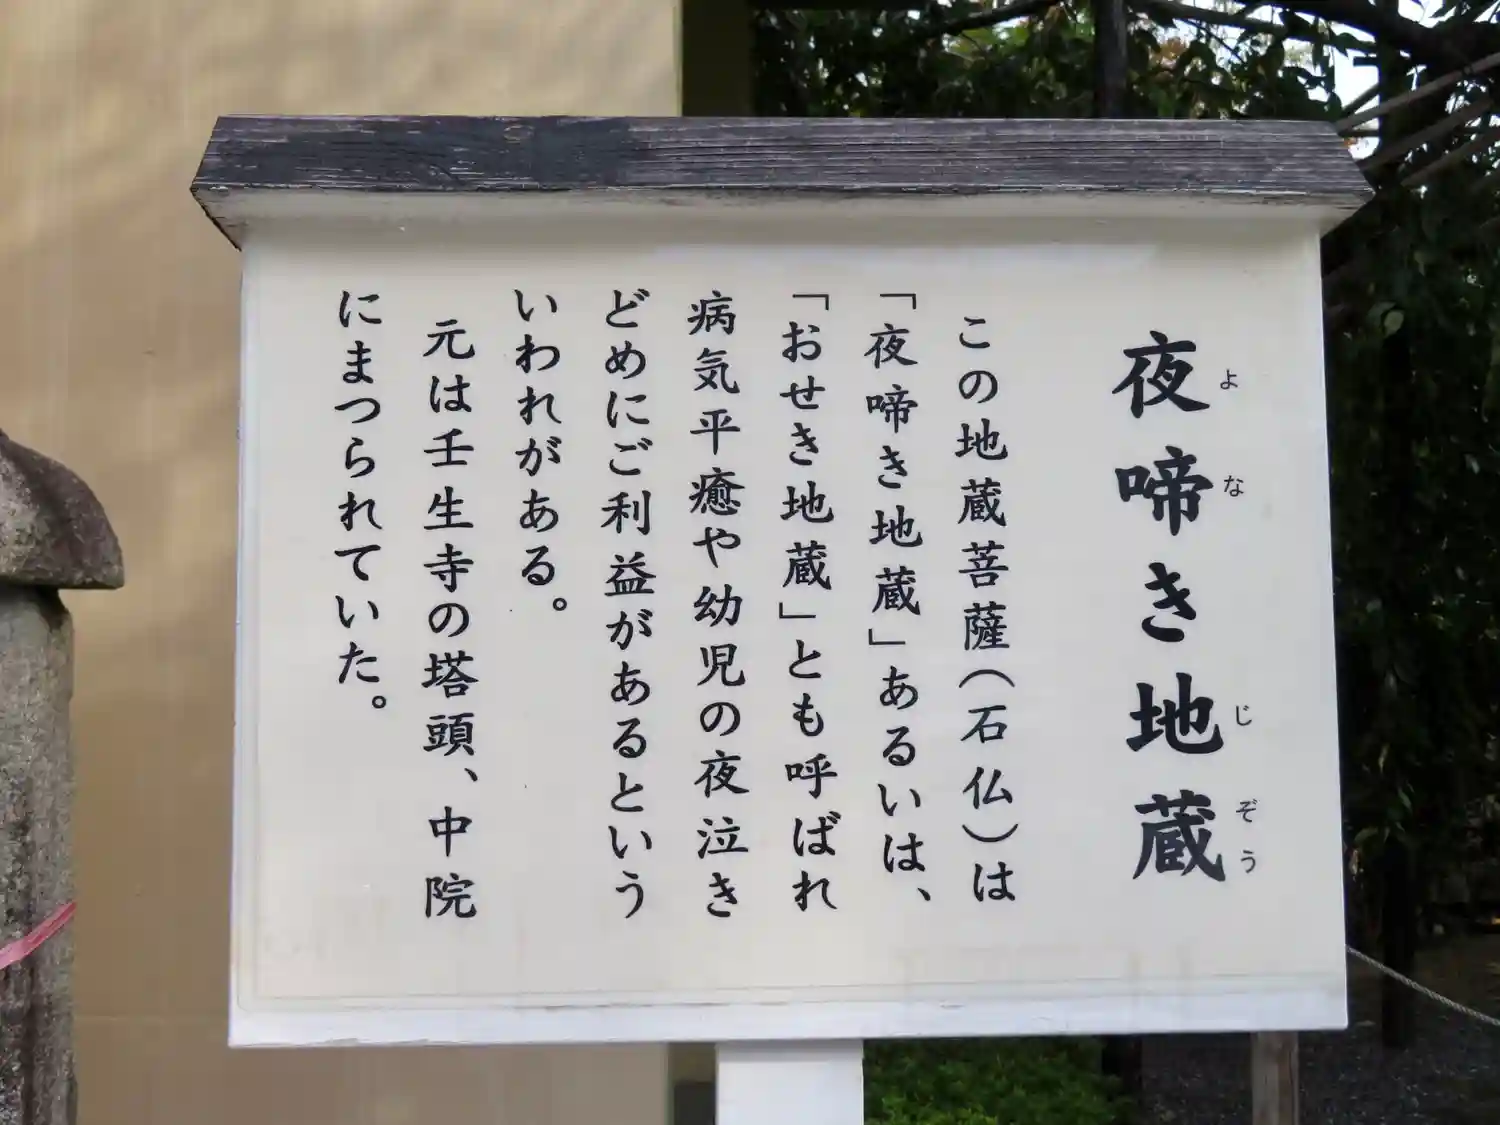 夜啼き地蔵
よなじぞう
この地蔵菩薩(石仏)は
「夜啼き地蔵」あるいは、
「おせき地蔵」とも呼ばれ
病気平癒や幼児の夜泣き
どめにご利益があるという
いわれがある。
元は壬生寺の塔頭、中院
にまつられていた。